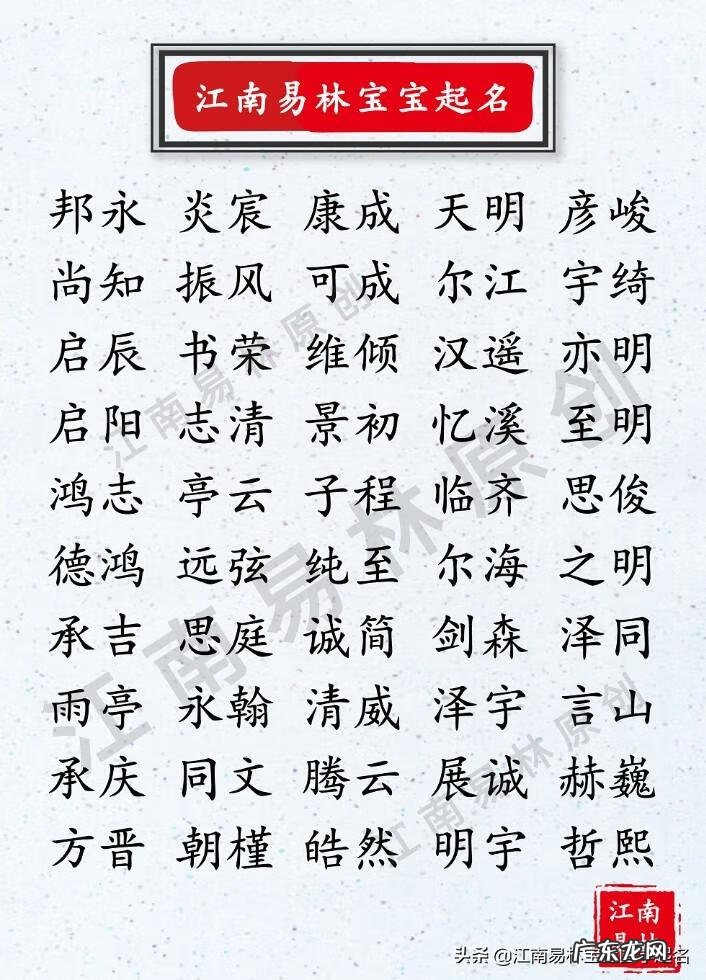 江南易林宝宝起名
邦永 炎宸 康成 天明 彦峻
尚知 振风 可成 尔江 宇绮
启辰 书荣 维倾 汉遥 亦明
启阳 志清 景初 忆溪 至明
鸿志 亭云 子程 临齐 思俊
德鸿 远弦 纯至 尔海 之明
承吉 思庭 诚简 剑森 泽同
雨亭 永翰 清威 泽宇 言山
承庆 同文 腾云 展诚 赫巍
方晋 朝槿 皓然 明宇 哲熙
江南易林原创
江南易林原创
江南易林原创
江南
易林
头条 @江南易林宝宝起名
广东龙网